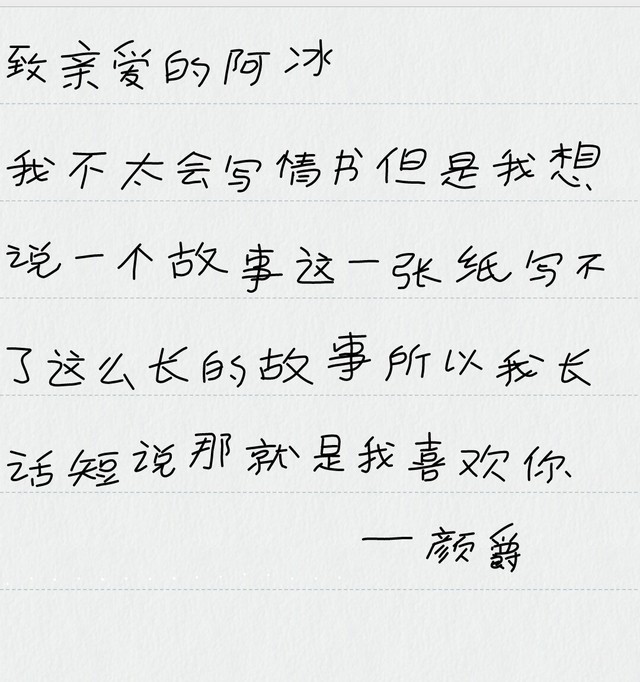 致亲爱的阿冰
我不太会写情书但是我想
说一个故事这一张纸写不
了这么长的故事所以我长
话短说那就是我喜欢你
一颜爵